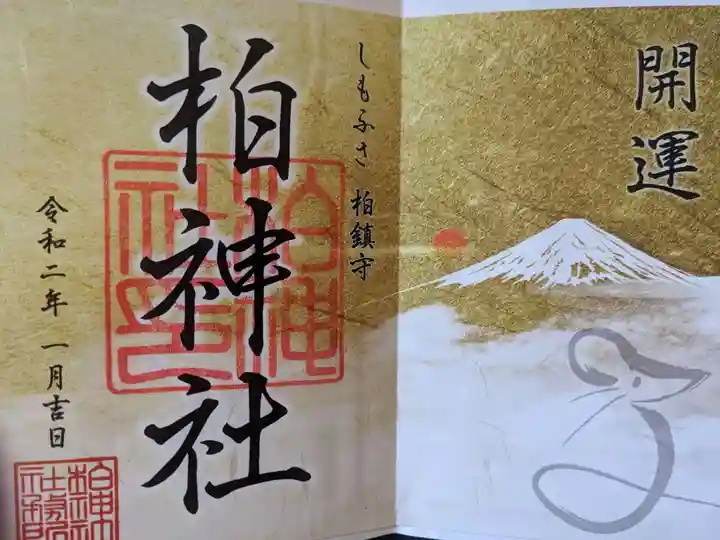 開運
しもふさ 柏鎮守
柏神社
令和二年 一月吉日
柏神社印